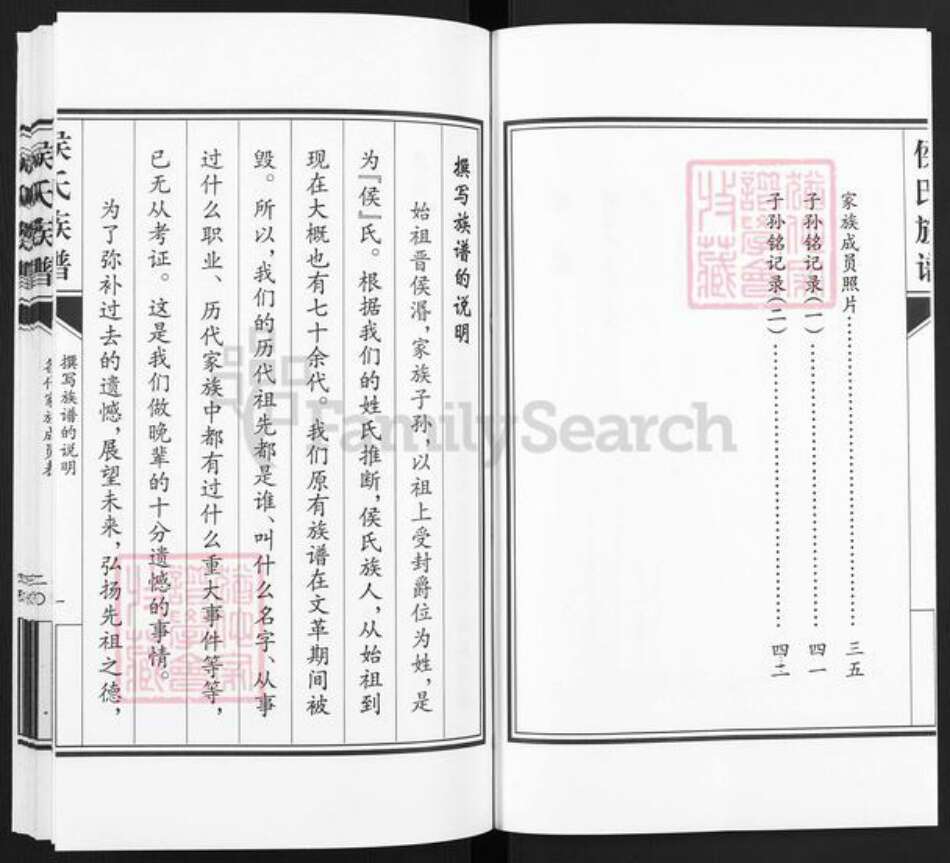 侯氏族谱
家族成员照片……………………三五
子孙铭记录(一)……………………四一
子孙铭记录(二)……………………四二
撰写族谱的说明
始祖晋侯湣,家族子孙,以祖上受封爵位为姓,是
为『侯』氏。根据我们的姓氏推断,侯氏族人,从始祖到
现在大概也有七十余代。我们原有族谱在文革期间被
毁。所以,我们的历代祖先都是谁、叫什么名字、从事
过什么职业、历代家族中都有过什么重大事件等等,
已无从考证。这是我们做晚辈的十分遗憾的事情。
为了弥补过去的遗憾,展望未来,弘扬先祖之德,
侯氏族谱
撰写族谱的说明
一
侯氏族谱
FamilySearch